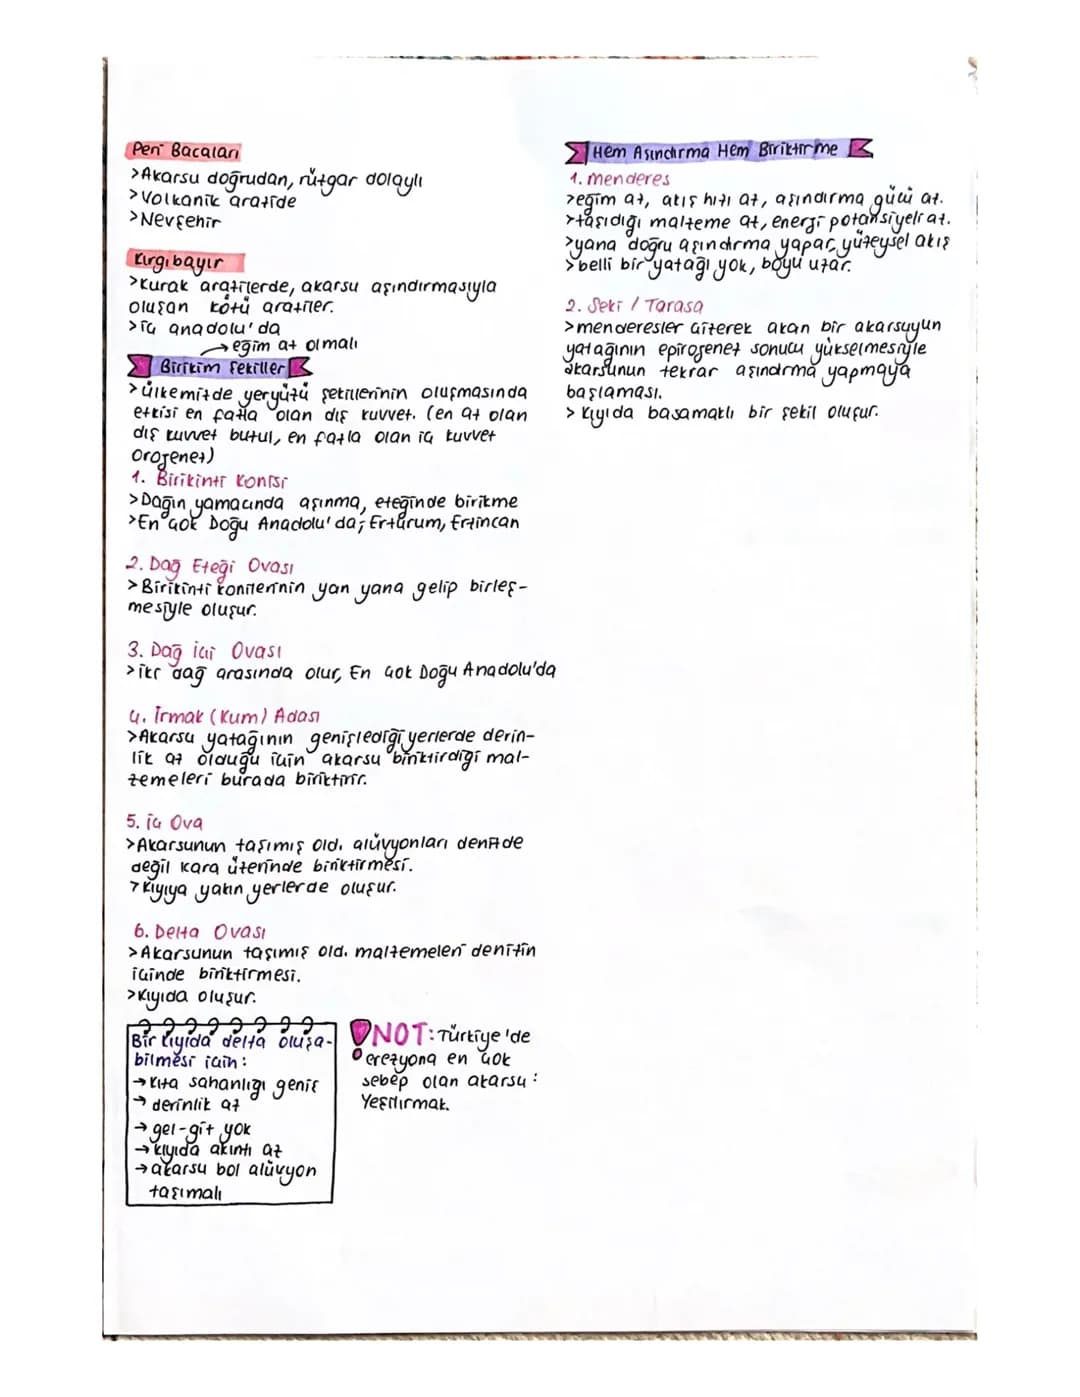 Peri Bacaları
>Akarsu doğrudan, rüzgar dolaylı
>Volkanik arazide
>Nevşehir
Kırgıbayır
>Kurak arazilerde, akarsu aşındırmasıyla
oluşan kötü araziler.
>iç anadolu'da
→eğim az olmalı
Birikim Şekiller
>ülkemizde yeryüzü şekillerinin oluşmasında
etkisi en fazla olan dış kuvvet. (en az olan
dış kuvvet buzul, en fazla olan iç kuvvet
orojenez)
1. Birikinti Konisi
>Dağın yamacında aşınma, eteğinde birikme
>En çok Doğu Anadolu'da; Erzurum, Erzincan
2. Dağ Eteği Ovası
>Birikinti konilerinin yan yana gelip birleş-
mesiyle oluşur.
3. Dağ içi Ovası
>iki dağ arasında olur, En çok Doğu Anadolu'da
4. Irmak (Kum) Adası
>Akarsu yatağının genişlediği yerlerde derin-
lik az olduğu için akarsu biriktirdiği mal-
zemeleri burada biriktirir.
5. iç Ova
>Akarsunun taşımış old. alüvyonları denizde
değil kara üzerinde biriktirmesi.
>Kıyıya yakın yerlerde oluşur.
6. Delta Ovası
>Akarsunun taşımış old. malzemeleri denizin
içinde biriktirmesi.
>Kıyıda oluşur.
Bir kıyıda delta oluşa-
bilmesi için:
→Kıta sahanlığı geniş
→derinlik az
→gel-git yok
→kıyıda akıntı az
→akarsu bol alüvyon
taşımalı
NOT: Türkiye'de
erezyona en çok
sebep olan akarsu:
Yeşilırmak.
Hem Aşındırma Hem Biriktirme
1. menderes
>eğim az, akış hızı az, aşındırma gücü az.
>taşıdığı malzeme az, enerji potansiyeli az.
>yana doğru aşındırma yapar, yüzeysel akış
>belli bir yatağı yok, boyu uzar.
2. Seki / Taraşa
>menderesler çizerek akan bir akarsuyun
yatağının epirojenez sonucu yükselmesiyle
akarsunun tekrar aşındırma yapmaya
başlaması.
> Kıyıda basamaklı bir şekil oluşur.